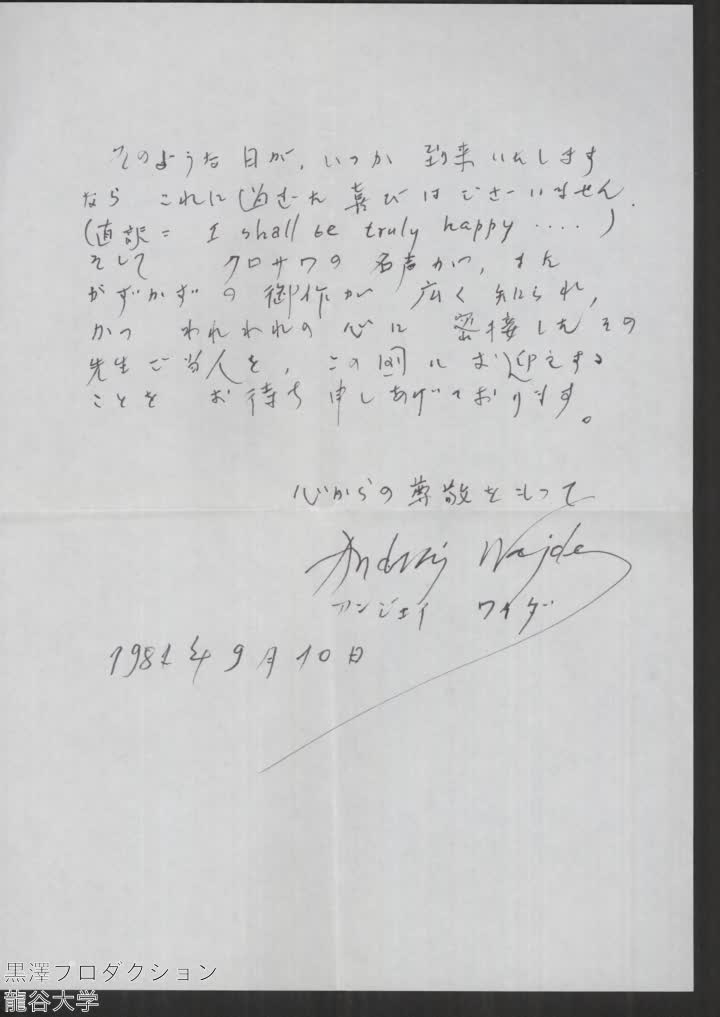 そのような日が、いつか 到来いたします
なら これに過ぎた喜びはございません.
(直訳= I shall be truly happy ....)
そして クロサワの名声がつ, また
がずかずの御作が 広く知られ,
かつ われわれの心に 密接したその
先生ご当人を, この国にお迎えする
ことを お待ち申しあげております。
心からの尊敬をもって
Andrzej Wajda
アンジェイ ワイダ
1981年9月10日
黒澤プロダクション
龍谷大学